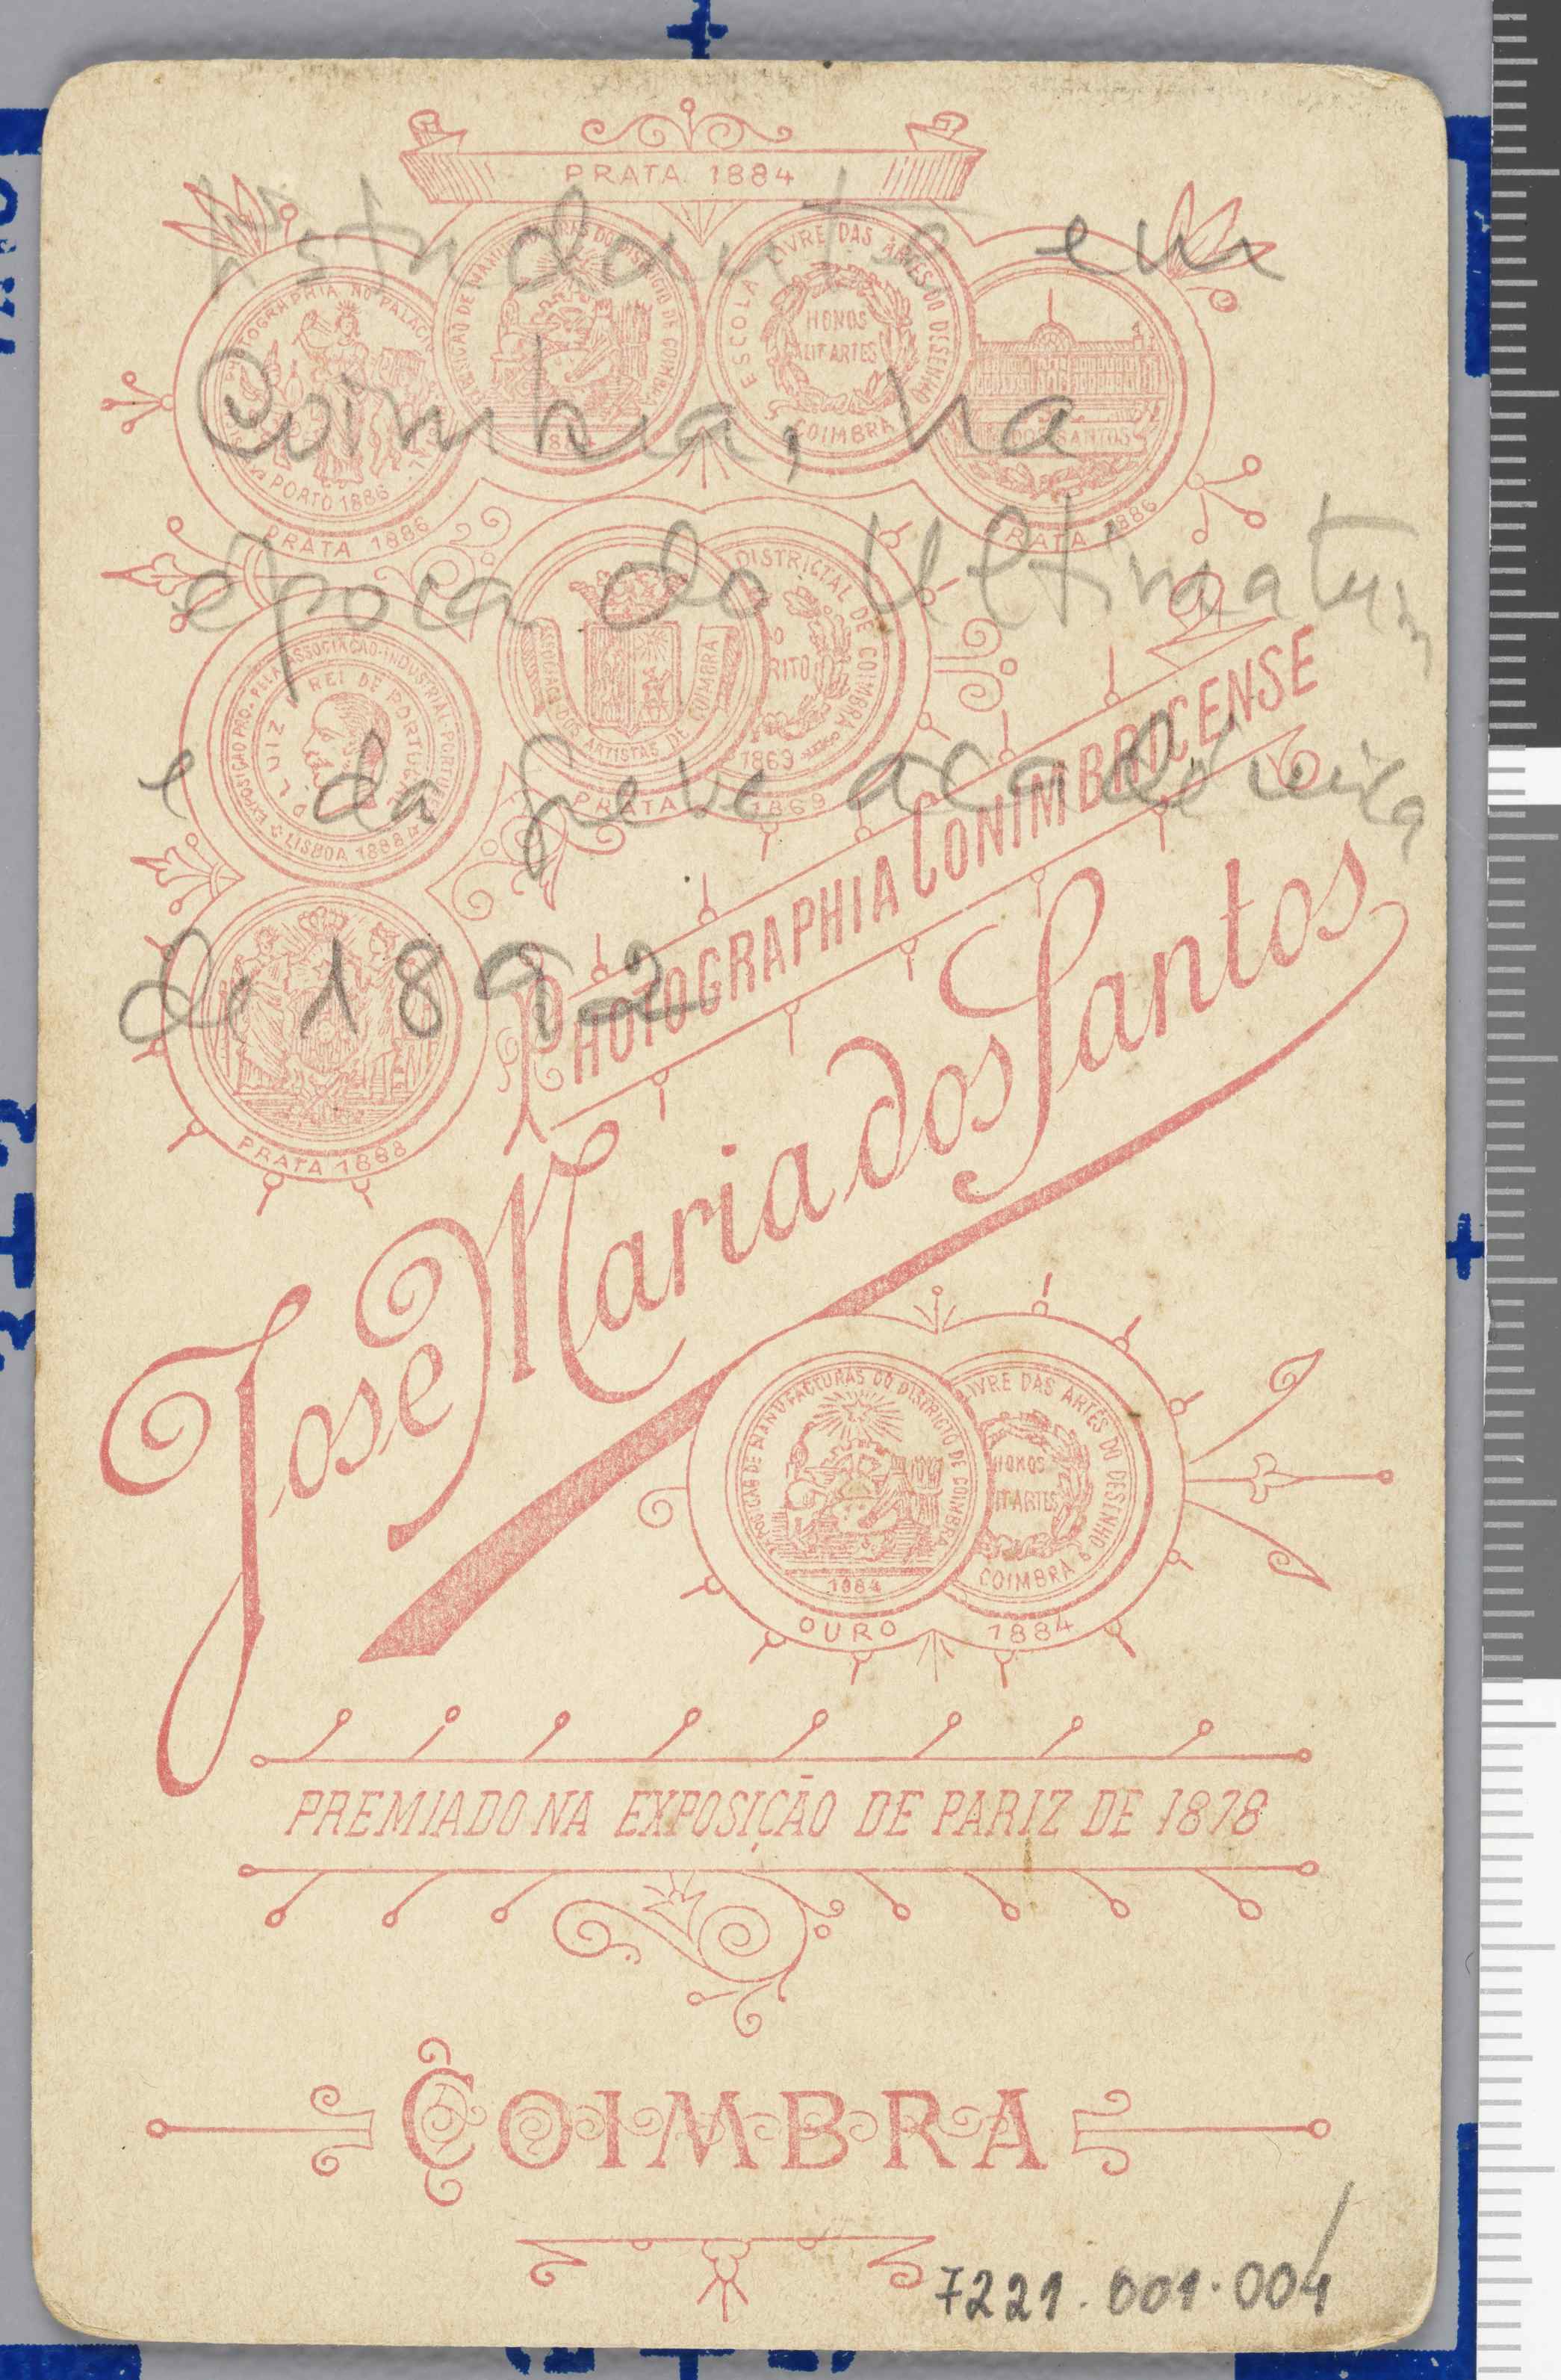 PRATA 1884
Estudante em
PHOTOGRAPHIA NO PALACIO
PORTO 1886
PRATA 1886
EXPOSIÇÃO DE MANUFACTURAS DO DISTRICTO DE COIMBRA
1884
ESCOLA LIVRE DAS ARTES DO DESENHO
HONOS
ALIT ARTES
COIMBRA
DOS SANTOS
PRATA 1886
Coimbra, na
epoca do Ultimatum
ASSOCIAÇÃO DOS ARTISTAS DE COIMBRA
DISTRICTAL DE COIMBRA
RITO
1869
PRATA 1869
EXPOSIÇÃO PRO. PELA ASSOCIAÇÃO-INDUSTRIAL-PORTUGUEZA
D. LUIZ I REI DE PORTUGAL
LISBOA 1888
e da greve académica
de 1892
PRATA 1888
PHOTOGRAPHIA CONIMBRICENSE
Jose Maria dos Santos
EXPOSIÇÃO DE MANUFACTURAS DO DISTRICTO DE COIMBRA
1884
LIVRE DAS ARTES DO DESENHO
HONOS
IT ARTES
COIMBRA
OURO 1884
PREMIADO NA EXPOSIÇÃO DE PARIZ DE 1878
COIMBRA
7221.001.004